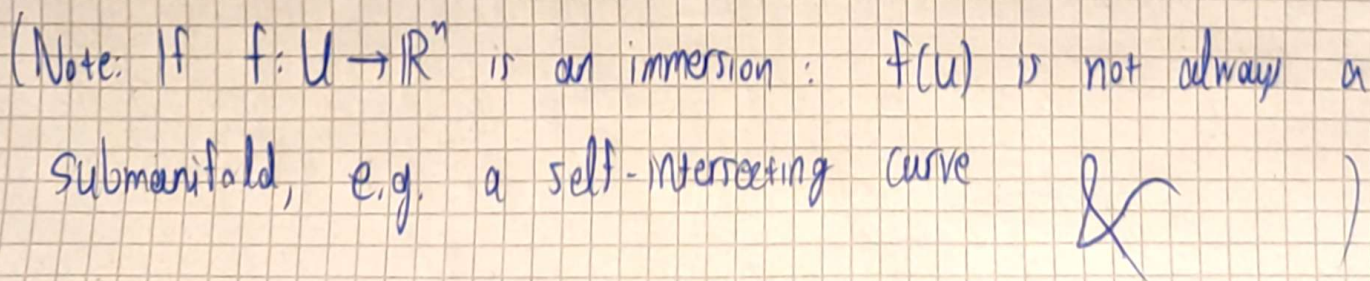 (Note: If f: U → ℝⁿ is an immersion: f(U) is not always a
submanifold, e.g. a self-intersecting curve )